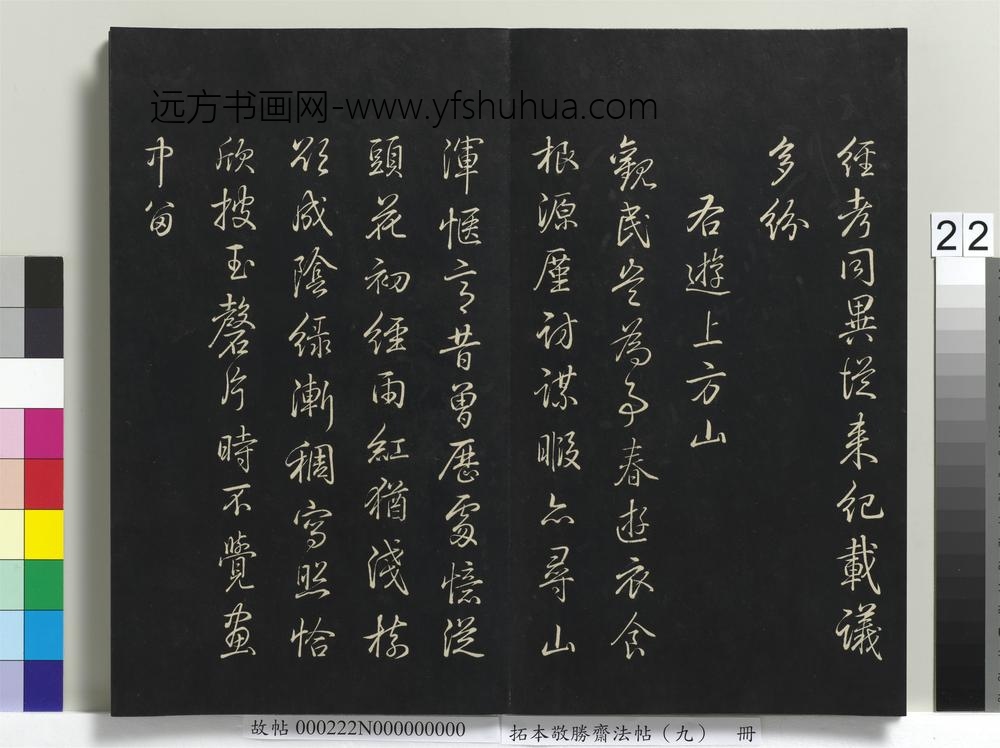 远方书画网-www.yfshuhua.com
經考同異從来紀載議
多紛
右遊上方山
觀民豈為事春遊衣食
根源廑討謀暇亦尋山
渾愜意昔曾歷處憶從
頭花初經雨紅猶淺樹
欲成陰緑漸稠寫照恰
欣披玉磬片時不覺畫
中留
22
故帖 000222N000000000
拓本敬勝齋法帖（九） 冊